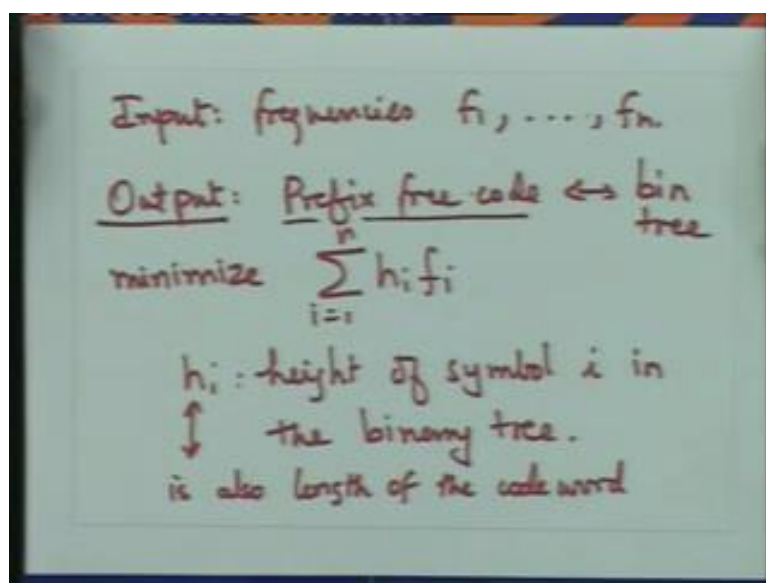 Input: frequencies f₁, ...., fₙ.
Output: Prefix free code ↔ bin tree
minimize ∑ᵢ₌₁ⁿ hᵢ fᵢ
hᵢ : height of symbol i in
↕ the binary tree.
is also length of the code word